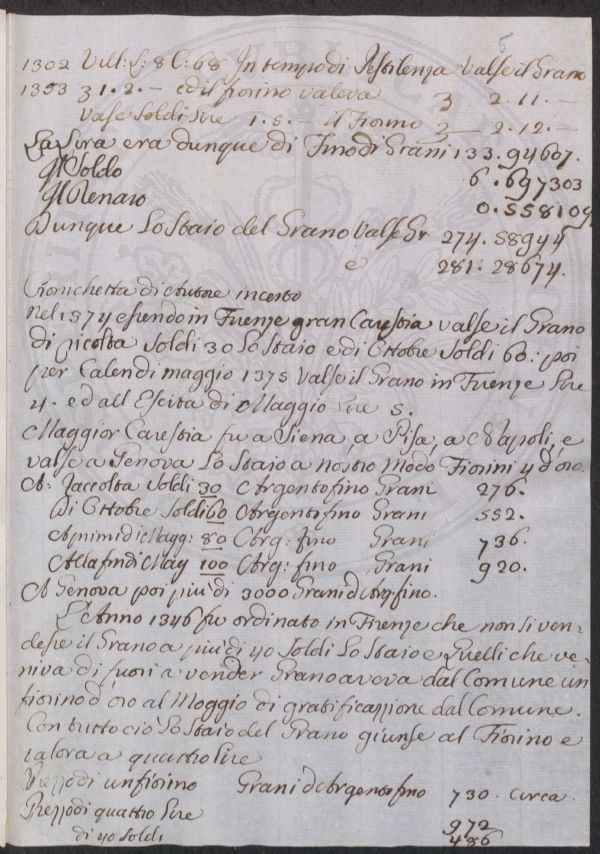 5
1302 Vill: S: 8 C: 68 In tempo di Pestilenza Valse il Grano
1353 3 1. 2. — ed il fiorino valeva 3 2. 11. —
Valse Soldi Lire 1. 5. — il Fiorino 3 2. 12. —
La Lira era dunque di Fino di Grani 133. 94607.
Il Soldo 6. 697303
Il Denaro 0. 558109
Dunque Lo Staio del Grano Valse Gr. 274. 58944
e 281. 28674.
Cronichetta di Autore incerto
Nel 1374 essendo in Firenze gran Carestia valse il Grano
di ricolta Soldi 30 Lo Staio e di Ottobre Soldi 60: poi
per Calendi maggio 1375 Valse il Grano in Firenze Lire
4. ed all Escita di Maggio Lire 5.
Maggior Carestia fu a Siena, a Pisa, a Napoli, e
valse a Genova Lo Staio a nostro modo Fiorini 4 d'oro.
A: Raccolta Soldi 30 Argento fino Grani 276.
Di Ottobre Soldi 60 Argento fino Grani 552.
A primi di Magg: 80 Arg: fino Grani 736.
Alla fin di Mag 100 Arg: fino Grani 920.
A Genova poi piu di 3000 Grani d'Arg. fino.
L'Anno 1346 fu ordinato in Firenze che non si ven-
desse il Grano a piu di 40 Soldi Lo Staio e Quelli che ve-
niva di fuori a vender Grano aveva dal Comune un
fiorino d'oro al Moggio di gratificazzione dal Comune.
Con tutto ciò Lo Staio del Grano giunse al Fiorino e
talora a quattro Lire
Prezzo di un fiorino Grani d'Argento fino 730. circa.
Prezzo di quattro Lire 972
di 40 Soldi 486